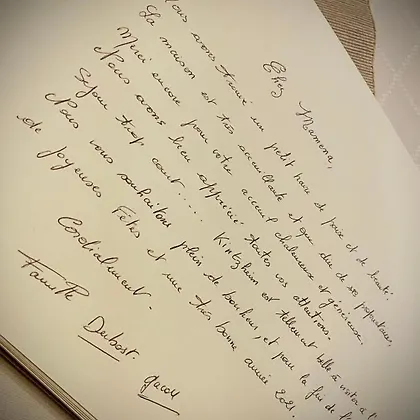 Chez Mamema,
Nous avons trouvé un petit havre de paix et de beauté.
La maison est très accueillante et que dire de ses propriétaires,
Merci encore pour votre accueil chaleureux et généreux.
Nous avons bien apprécié toutes vos attentions.
Séjour trop court.... Kintzheim est tellement belle à visiter
Nous vous souhaitons plein de bonheur et pour la fin de
de joyeuses Fêtes et une très bonne année
Cordialement.
Famille Dubost